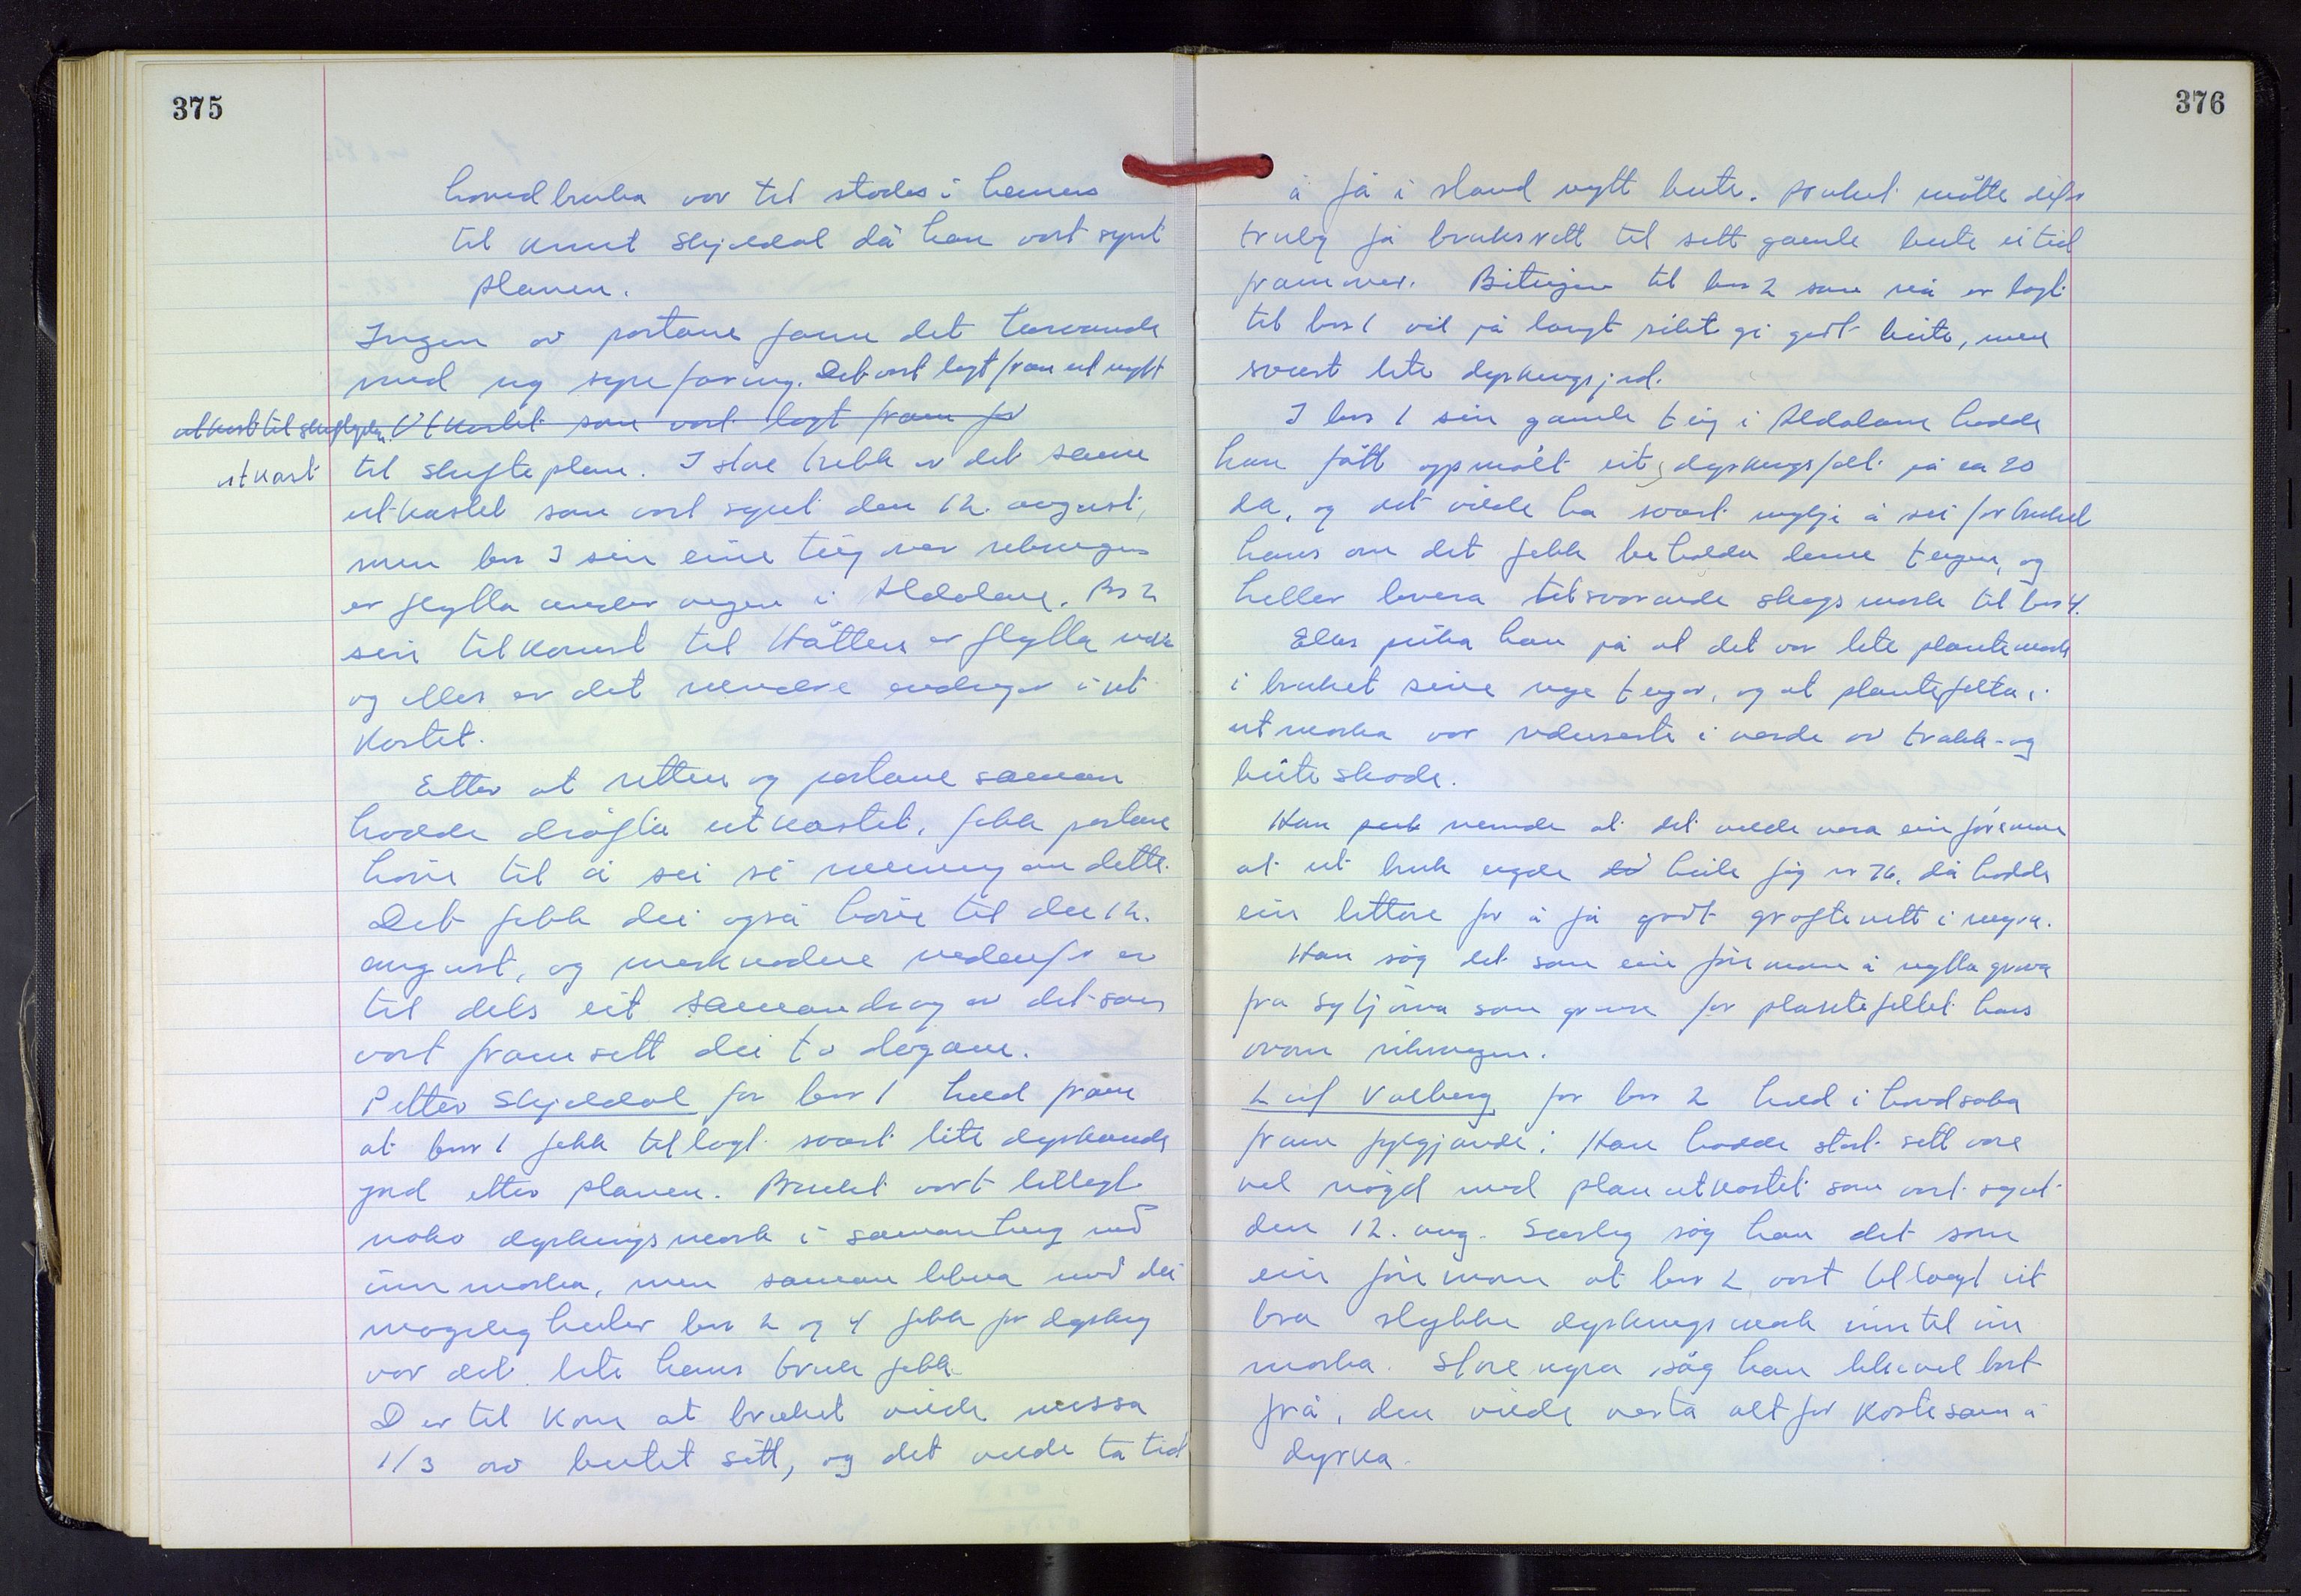 375
hovedbruka var til stades i heimen
til Knut Skjeldal då han vart synt
planen.
Ingen av partane fann det turvande
med ny synfaring. Det vart lagt fram eit nytt
utkast til skifteplan. Utkastet som vart lagt fram for
utkast til skifteplan. I store trekk er det same
utkastet som vart synt den 12. august,
men bnr 1 sin eine teig ner
er flytta under vegen i Aldalane. Bnr 2
sin tilkomst til Håtten er flytta
og elles er det mindre endringar i ut
kastet.
Etter at retten og partane saman
hadde drøfta utkastet, fekk partane
høve til å sei si meining om dette.
Det fekk dei også høve til den 12.
august, og merknadene nedanfor er
til dels eit samandrag av det som
vart framsett dei to dagane.
Petter Skjeldal for bnr 1 held fram
at bnr 1 fekk tillagt svært lite dyrkande
jord etter planen. Bruket vart tillagt
noko dyrkingsmark i samanheng med
innmarka, men samanlikna med dei
mogelegheiter bnr 2 og 4 fekk for dyrking
var det lite hans bruk fekk.
Der til kom at bruket ville missa
1/3 av beitet sitt, og det ville ta tid
376
å få i stand nytt beite. Bruket måtte difor
truleg få bruksrett til sitt gamle beite ei tid
framover. Biteigen til bnr 2 som nå er lagt
til bnr 1 vil på langt sikt gi godt beite, men
svært lite dyrkingsjord.
I bnr 1 sin gamle teig i Aldalane hadde
han fått oppmålt eit dyrkingsfelt på ca 20
da, og det ville ha svært mykje å sei for bruket
hans om det fekk behalda denne teigen, og
heller levera tilsvarande skogsmark til bnr 4.
Elles peika han på at det var lite plantemark
i bruket sine nye teigar, og at plantefelta i
utmarka var reduserte i verde av trakk- og
beiteskade.
Han nemde at det ville vera ein føremon
at eit bruk eigde heile fig nr 76, då hadde
ein lettare for å få godt grøftevett i myra.
Han såg det som ein føremon å nytta grova
fra Sytjørna som grense for plantefeltet hans
ovom riksvegen.
Leif Valberg for bnr 2 held i hovudsaka
fram fylgjande: Han hadde stort sett vore
vel nøgd med planutkastet som vart synt
den 12. aug. Særleg såg han det som
ein føremon at bnr 2 vart tillagt eit
bra stykke dyrkingsmark inn til inn
marka. Storemyra såg han likevel bort
frå, den ville verta alt for kostesam å
dyrka.